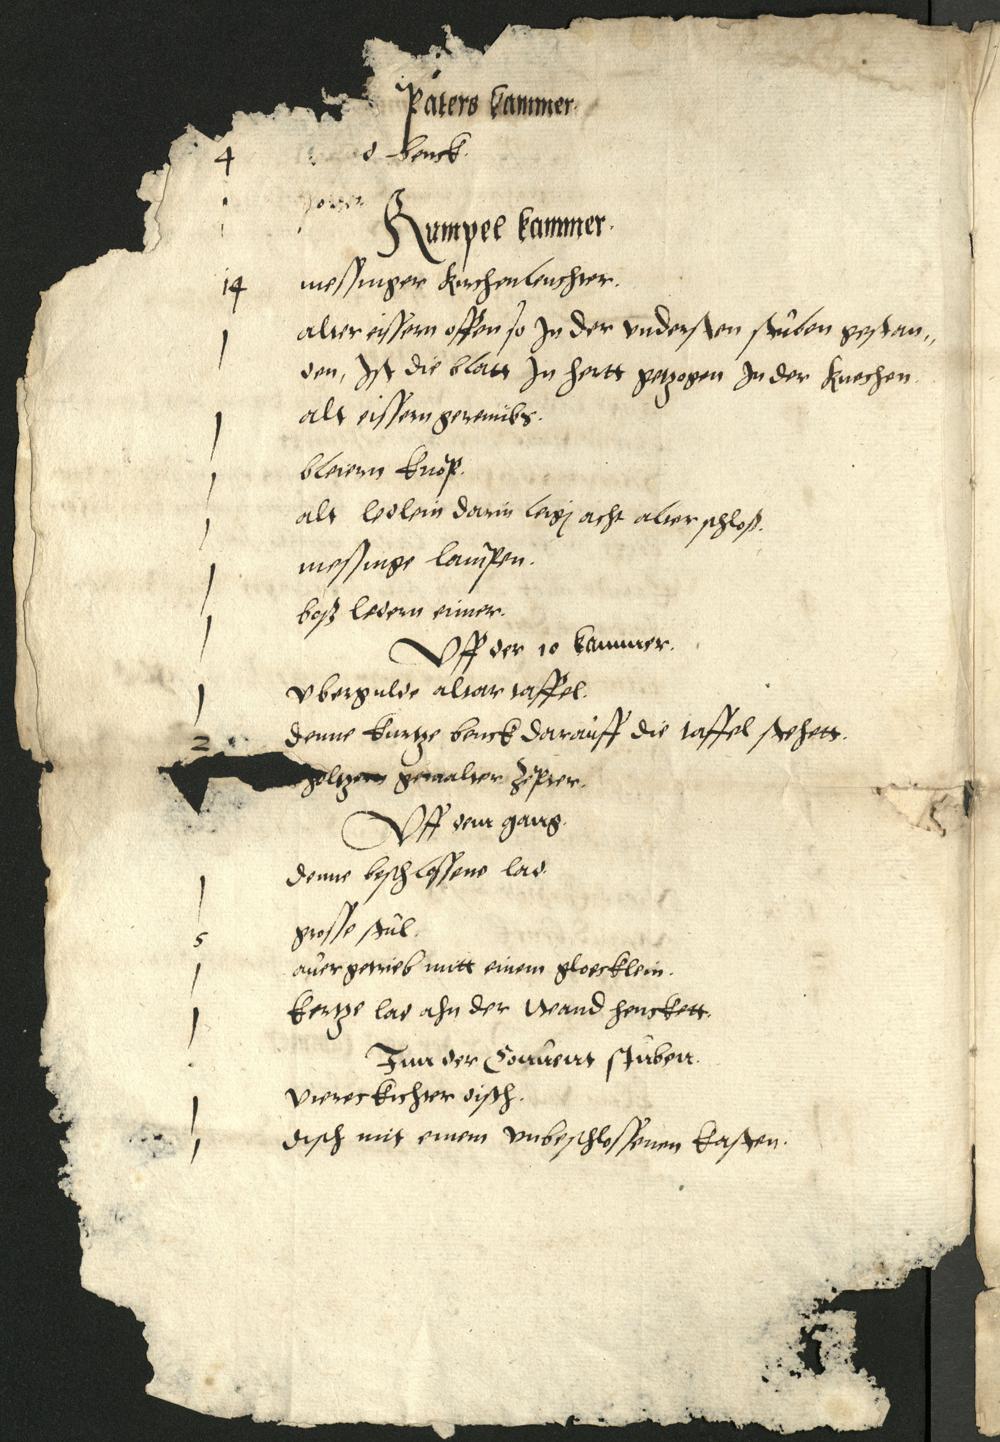 Paters kammer
4 benck.
Rumpel kammer.
14 messinger kirchenleuchter.
1 alter eissern offen so In der vndersten stuben gestan„
den, Ist die blatt In hertt getzogen In der kuechen
1 alt eissern gerembs.
1 bleiern knöpf.
1 alt ledlein darin acht alter schloß.
1 messinge lampen.
1 boß ledern eimer.
Vff der 10 kammer.
1 vbergulde altar taffel.
2 denne kurtze benck darauff die taffel stehett.
holtzern gemalter Zepter.
Vff dem gang.
1 denne beschlossene lad
5 grosse stul
1 getrieb mitt einem gloecklein.
1 kertze lad ahn der Weand henckett.
Inn der Conuent stuben.
1 viereckichter disch.
1 disch mit einem vnbeschlossenen kasten.